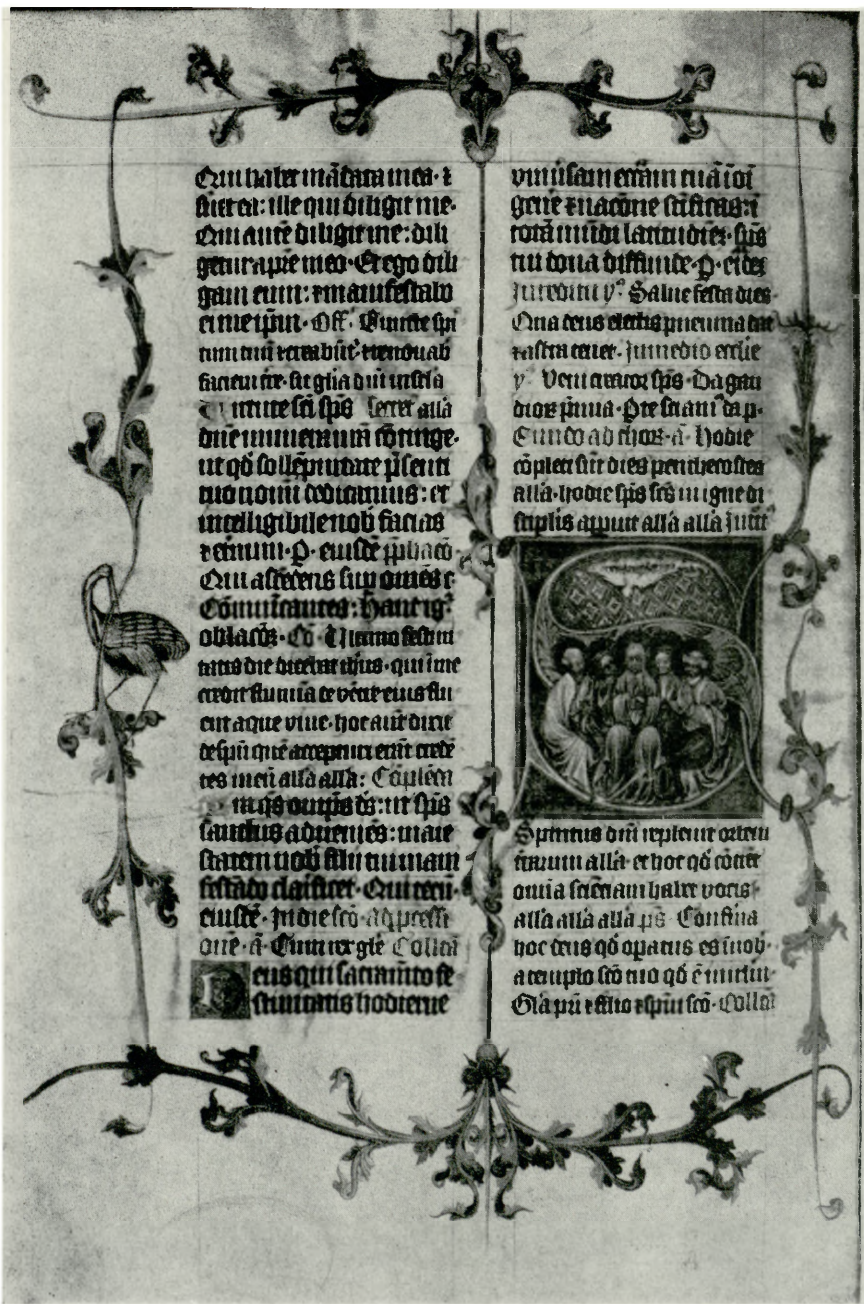 Qui habet mādata mea · ⁊
ille qui diligit me ·
Qui autē diligit me : dili
getur a p̄re meo · Et ego dili
gam eum : ⁊ manifestabo
ei me ip̄m · Off · Emitte spi
ritum tuū ⁊ creabūt̄ ⁊ renouab
faciem t̄re · sit gl̄ia dn̄i in sc̄la
Uirtute sc̄i sp̄s Secret allā
dn̄e
ut qd̄ sollēpnitate p̄senti
tuo nomī dedicamus : et
intelligibile nob̄ facias
⁊ et̄num · P · eiusdē
Qui ascēdens sup om̄es c
Cōmunicantes : Hanc ig̃
oblacōē · Cō · Ultimo festiui
tatis die dicebat ih̄us · qui ī me
credit flumīa de vētre eius flu
ent aque viue · hoc aut̄ dixit
de sp̄u quē accepturi erāt credē
tes in eū allā allā : Cōplend
sp̄s
sanctus adueniēs : maie
statem nob̄ filii tui mani
festādo clarificet · Qui tecū ·
eiusdē · In die sc̄o ad p̄cessi
onē · ā · Cum rex gl̄ie Collcā
Deus qui sacramēto fe
stiuitatis hodierne
vniūsam eccl̄iam tuā ī oī
gente ⁊ nacōne sc̄ificas : ī
totā mūdi latitudinē · sp̄s
tui dona diffunde · P · eiusdē
In reditu v̉ Salue festa dies ·
Qua deus
⁊ astra tenet · In medio eccl̄ie
v̉ Veni creator sp̄s · Da gau
dior p̄mia ·
Eundo ad chor̄ · ā · Hodie
cōpleti sūt dies penthecostes
allā · hodie sp̄s sc̄s in igne di
scip̄lis apparuit allā allā Introit
Spiritus dn̄i repleuit orbem
terrarum allā · et hoc qd̄ cōtinet
omīa scīenciam habet vocis ·
allā allā allā p̄s Confirma
hoc deus qd̄ operatus es ī nob̄ ·
a templo sc̄o tuo qd̄ ē in ierlm̄ ·
Glā pri ⁊ filio ⁊ sp̄ui sc̄o · Collcā